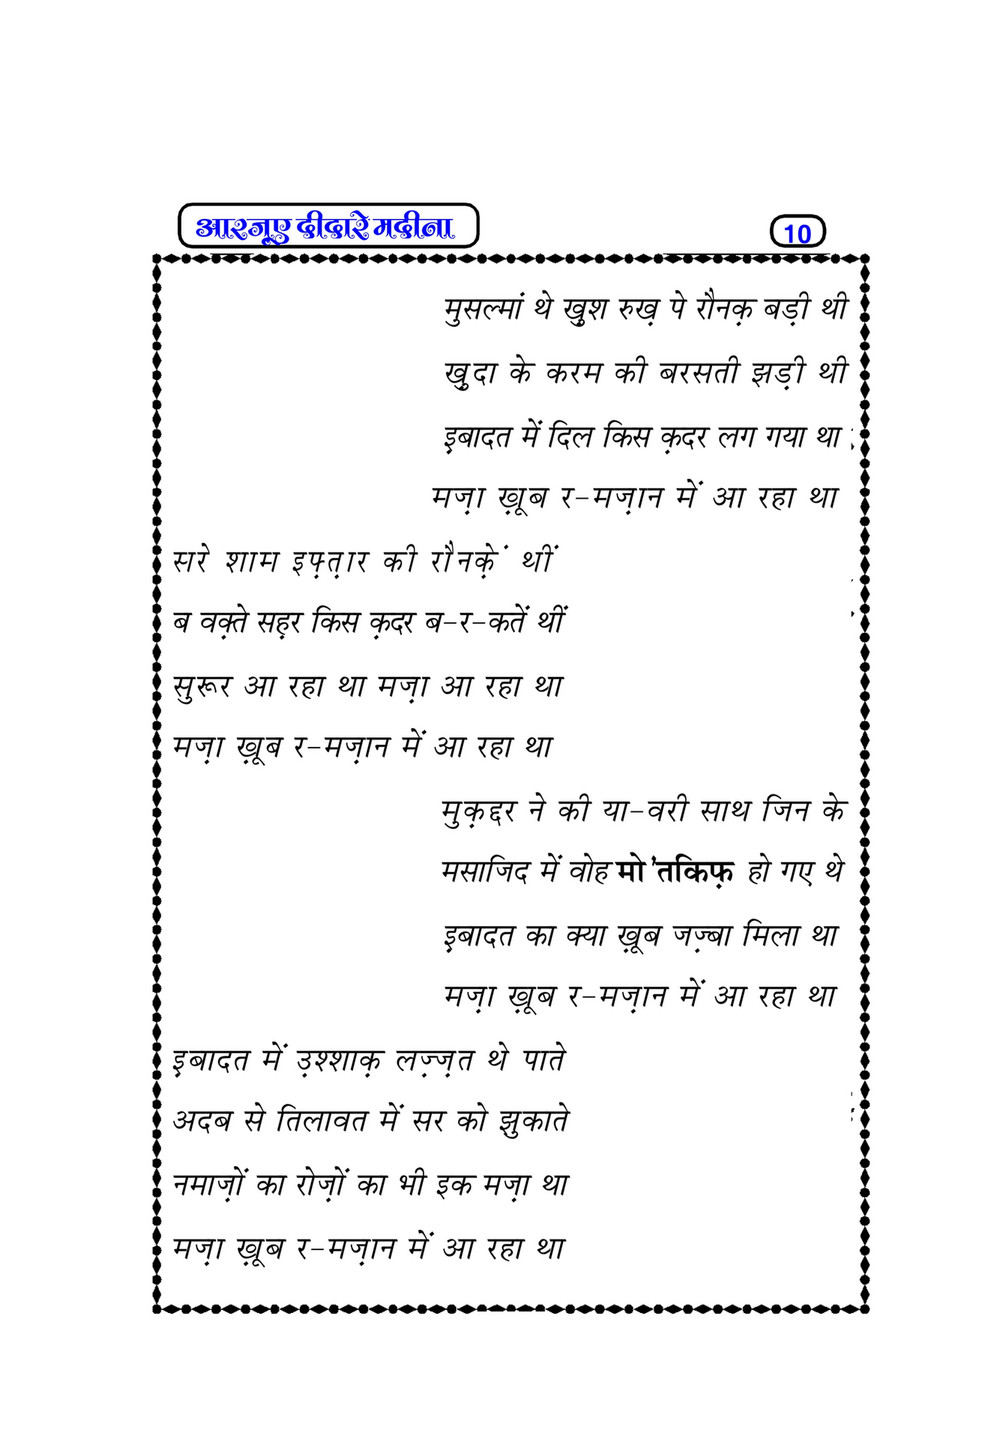 आरज़ूए दीदारे मदीना
10
मुसल्मां थे ख़ुश रुख़ पे रौनक़ बड़ी थी
ख़ुदा के करम की बरसती झड़ी थी
इ़बादत में दिल किस क़दर लग गया था
मज़ा ख़ूब र-मज़ान में आ रहा था
सरे शाम इफ़्त़ार की रौनक़ें थीं
ब वक़्ते सह़र किस क़दर ब-र-कतें थीं
सुरूर आ रहा था मज़ा आ रहा था
मज़ा ख़ूब र-मज़ान में आ रहा था
मुक़द्दर ने की या-वरी साथ जिन के
मसाजिद में वोह मो'तकिफ़ हो गए थे
इ़बादत का क्या ख़ूब जज़्बा मिला था
मज़ा ख़ूब र-मज़ान में आ रहा था
इ़बादत में उ़श्शाक़ लज़्ज़त थे पाते
अदब से तिलावत में सर को झुकाते
नमाज़ों का रोज़ों का भी इक मज़ा था
मज़ा ख़ूब र-मज़ान में आ रहा था